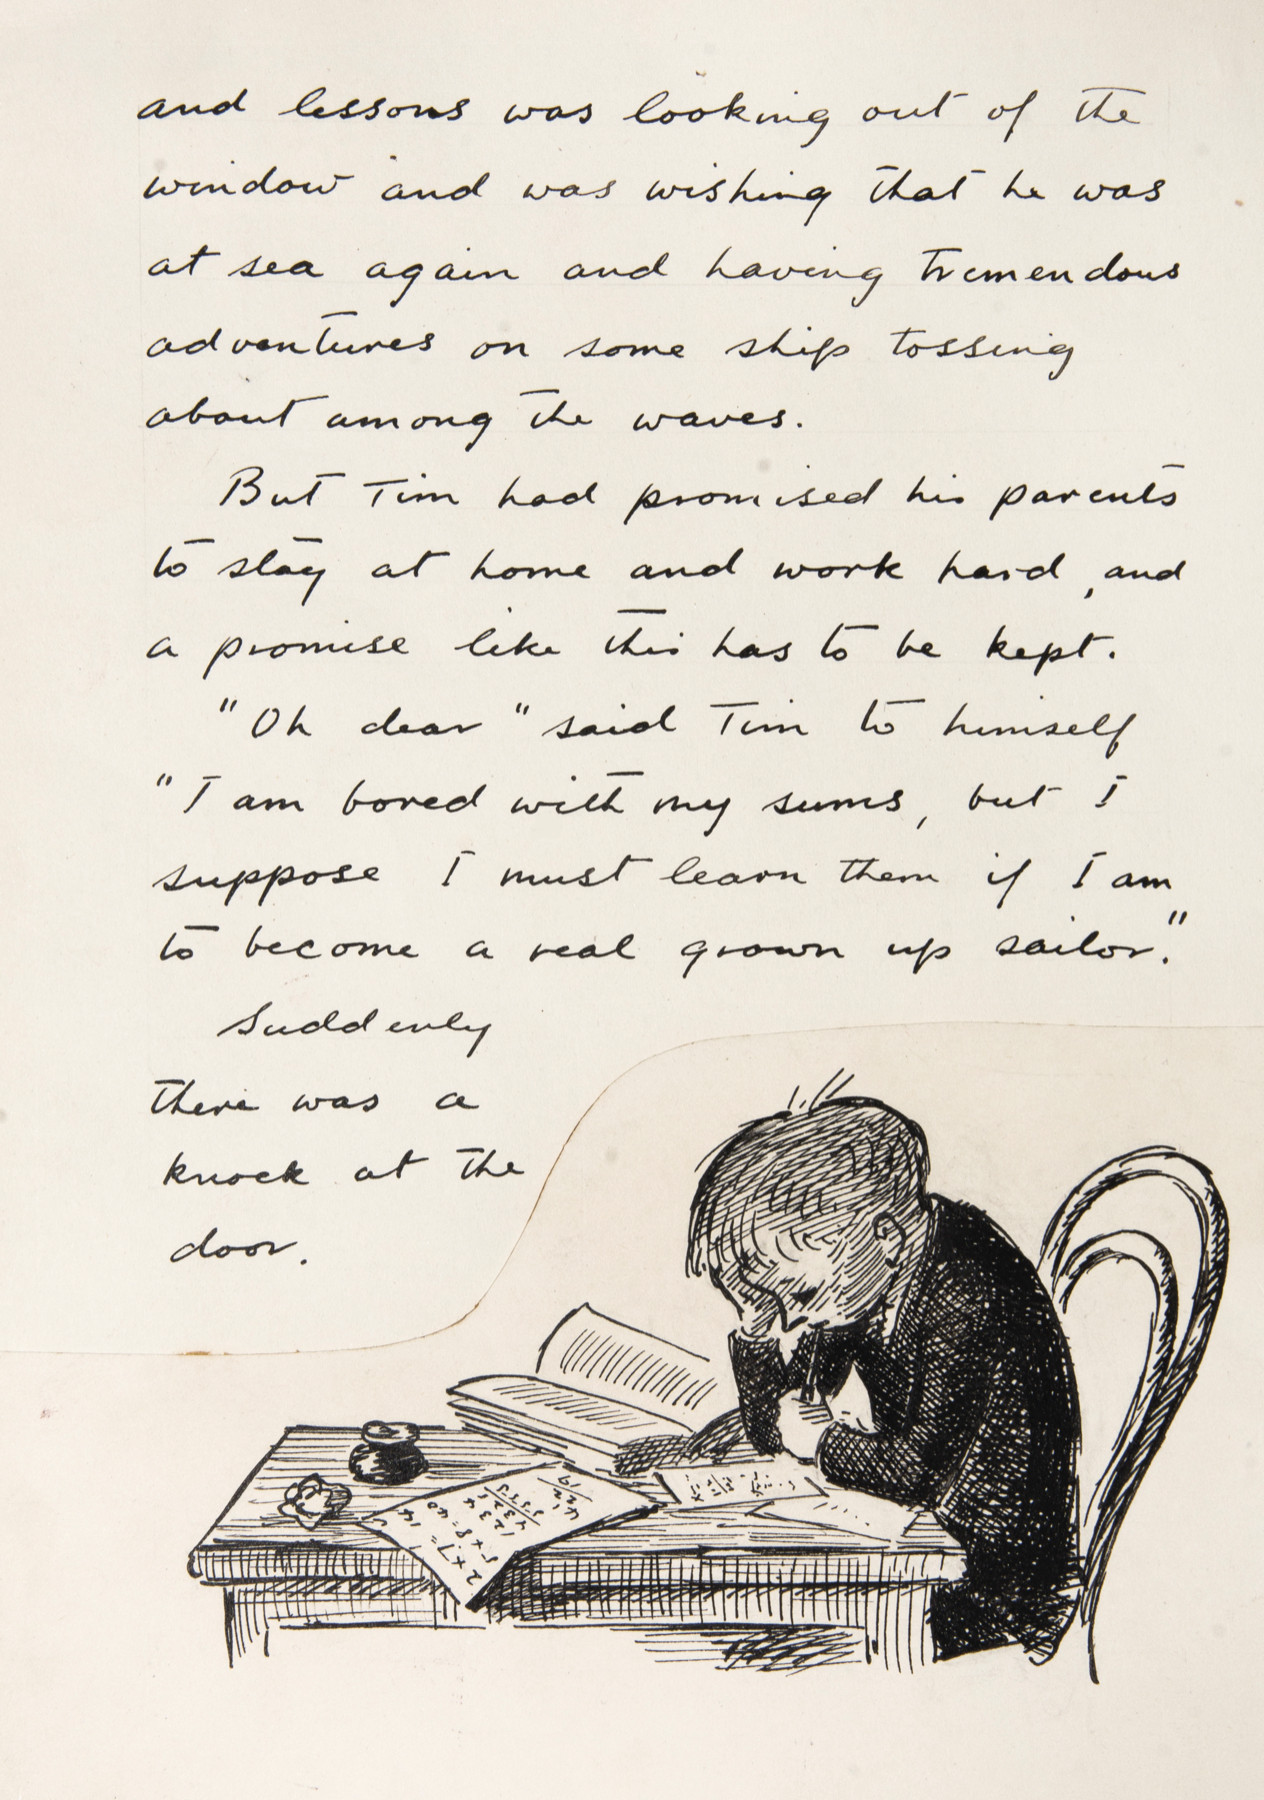 and lessons was looking out of the
window and was wishing that he was
at sea again and having tremendous
adventures on some ship tossing
about among the waves.
But Tim had promised his parents
to stay at home and work hard, and
a promise like this has to be kept.
"Oh dear" said Tim to himself
"I am bored with my sums, but I
suppose I must learn them if I am
to become a real grown up sailor."
Suddenly
there was a
knock at the
door.
2 x 7 = 14
5 x 8 = 40
1234
4321
5555